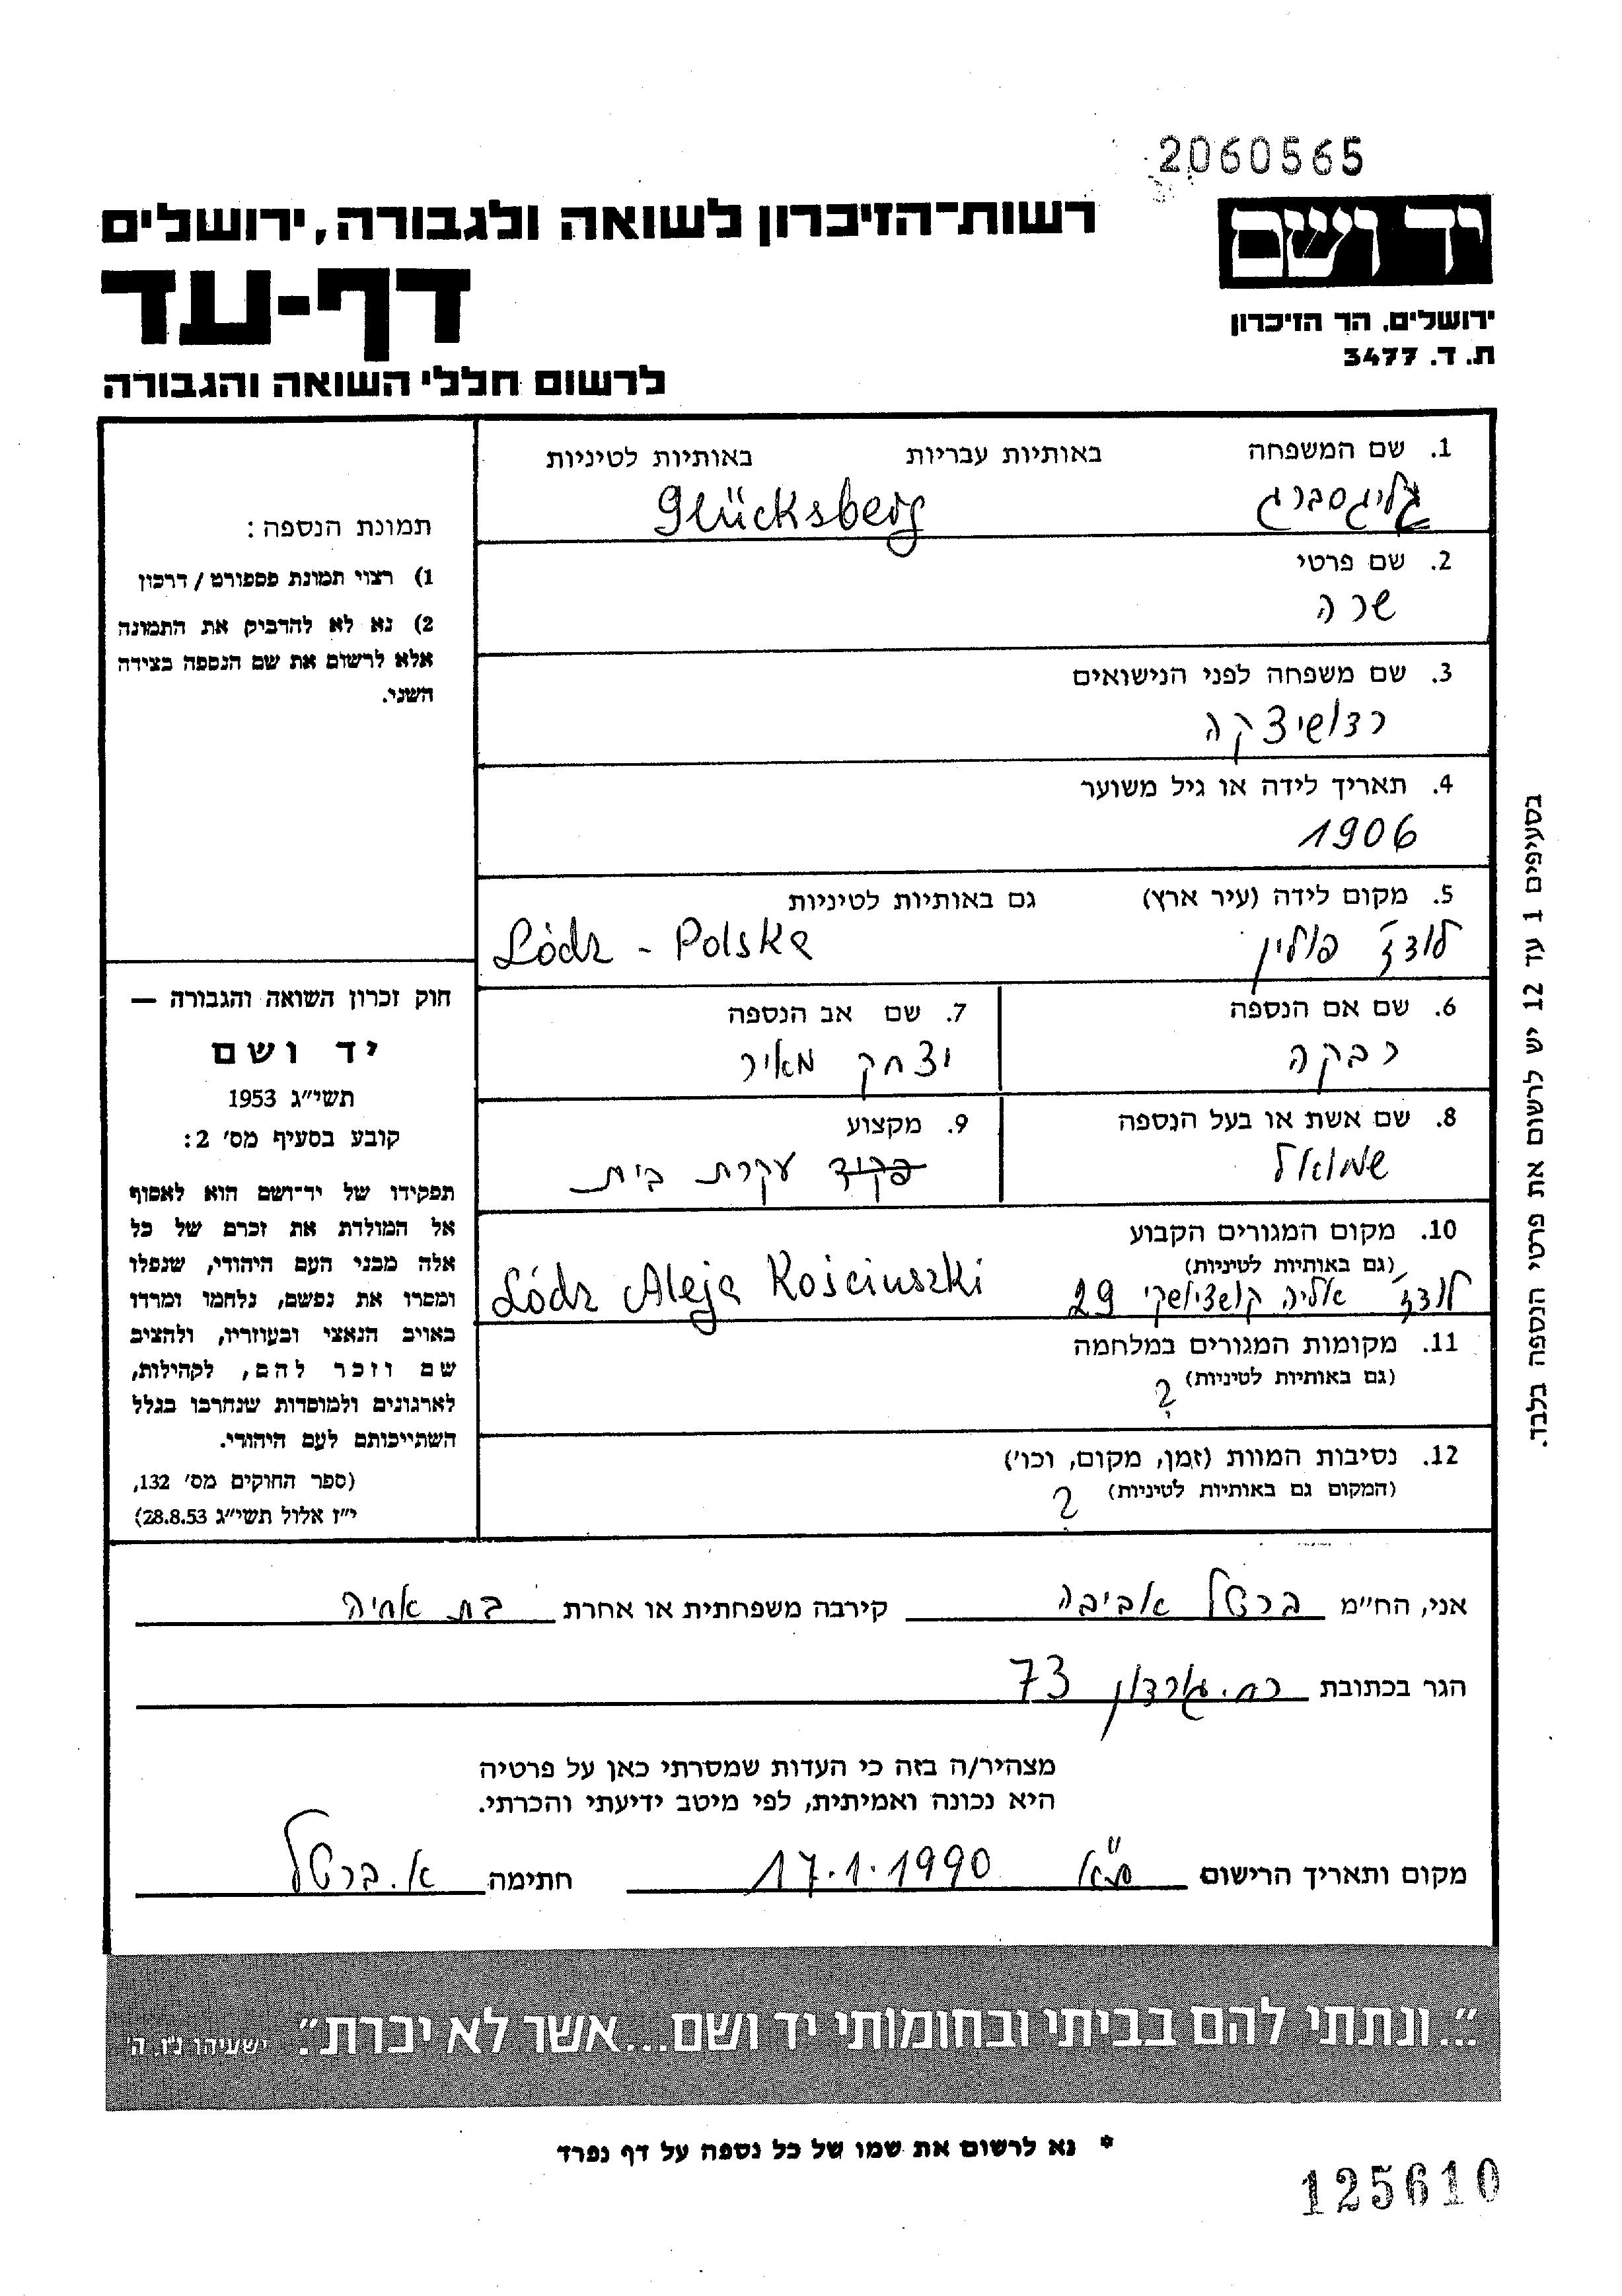 2060565
יד ושם
רשות־הזיכרון לשואה ולגבורה, ירושלים
דף-עד
ירושלים, הר הזיכרון
ת. ד. 3477
לרשום חללי השואה והגבורה
1. שם המשפחה באותיות עבריות באותיות לטיניות
גליגסברג Glücksberg
2. שם פרטי
שרה
3. שם משפחה לפני הנישואים
רדושיצקה
4. תאריך לידה או גיל משוער
1906
5. מקום לידה (עיר ארץ) גם באותיות לטיניות
לודז' פולין Lódz - Polska
6. שם אם הנספה
רבקה
7. שם אב הנספה
יצחק מאיר
8. שם אשת או בעל הנספה
שמואל
9. מקצוע
עקרת בית
10. מקום המגורים הקבוע
(גם באותיות לטיניות)
לודז' אליה קושציושקי 29 Lódz Aleja Kościuszki
11. מקומות המגורים במלחמה
(גם באותיות לטיניות) ?
12. נסיבות המוות (זמן, מקום, וכו')
(המקום גם באותיות לטיניות) ?
תמונת הנספה:
1) רצוי תמונת פספורט / דרכון
2) נא לא להדביק את התמונה
אלא לרשום את שם הנספה בצידה
השני.
חוק זכרון השואה והגבורה —
יד ושם
תשי"ג 1953
קובע בסעיף מס' 2:
תפקידו של יד־ושם הוא לאסוף
אל המולדת את זכרם של כל
אלה מבני העם היהודי, שנפלו
ומסרו את נפשם, נלחמו ומרדו
באויב הנאצי ובעוזריו, ולהציב
שם וזכר להם, לקהילות,
לארגונים ולמוסדות שנחרבו בגלל
השתייכותם לעם היהודי.
(ספר החוקים מס' 132,
י"ז אלול תשי"ג 28.8.53)
בסעיפים 1 עד 12 יש לרשום את פרטי הנספה בלבד.
אני, הח"מ ברטל אביבה קירבה משפחתית או אחרת בת אחיה
הגר בכתובת רח. גורדון 73
מצהיר/ה בזה כי העדות שמסרתי כאן על פרטיה
היא נכונה ואמיתית, לפי מיטב ידיעתי והכרתי.
מקום ותאריך הרישום ת"א 17.1.1990 חתימה א. ברטל
"...ונתתי להם בביתי ובחומותי יד ושם...אשר לא יכרת". ישעיהו נ"ו, ה'
* נא לרשום את שמו של כל נספה על דף נפרד
125610